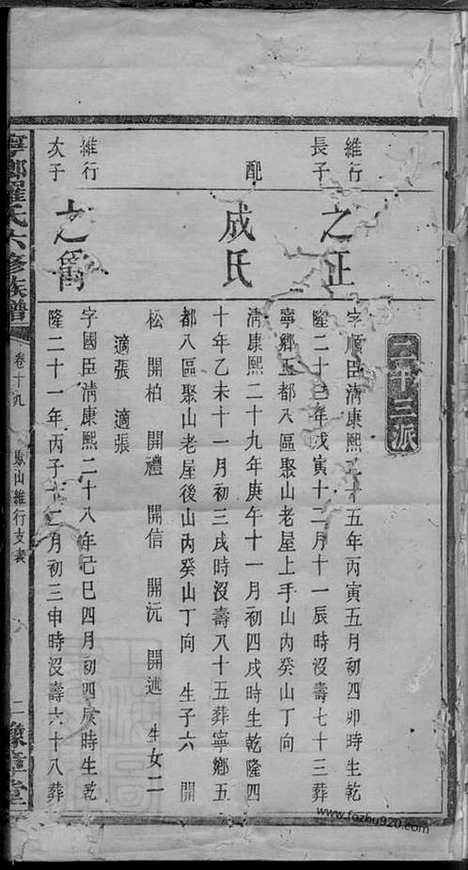 二十三派
維行
長子
之正
字順臣清康熙二十五年丙寅五月初四卯時生乾
隆二十三年戊寅十二月十一辰時沒壽七十三葬
寧鄉五都八區聚山老屋上手山內癸山丁向
配
成氏
清康熙二十九年庚午十一月初四戌時生乾隆四
十年乙未十一月初三戌時沒壽八十五葬寧鄉五
都八區聚山老屋後山內癸山丁向 生子六 開
松 開柏 開禮 開信 開沅 開述 生女二
適張 適張
維行
次子
之
字國臣清康熙二十八年己巳四月初四辰時生乾
隆二十一年丙子十二月初三申時沒壽六十八葬
寧鄉羅氏六修族譜 卷十九 聚山維行支表 二 豫章堂
www.fozhu920.com